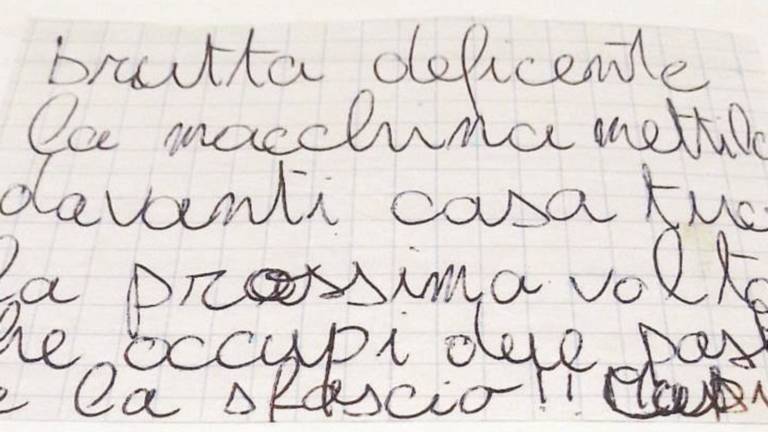 brutta deficente
la macchina mettila
davanti casa tua
la prossima volta
che occupi due post
te la sfascio!!